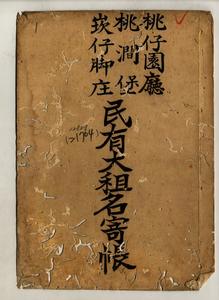 桃仔園廳
桃澗堡
崁仔脚庄
民有大租名寄帳
1704